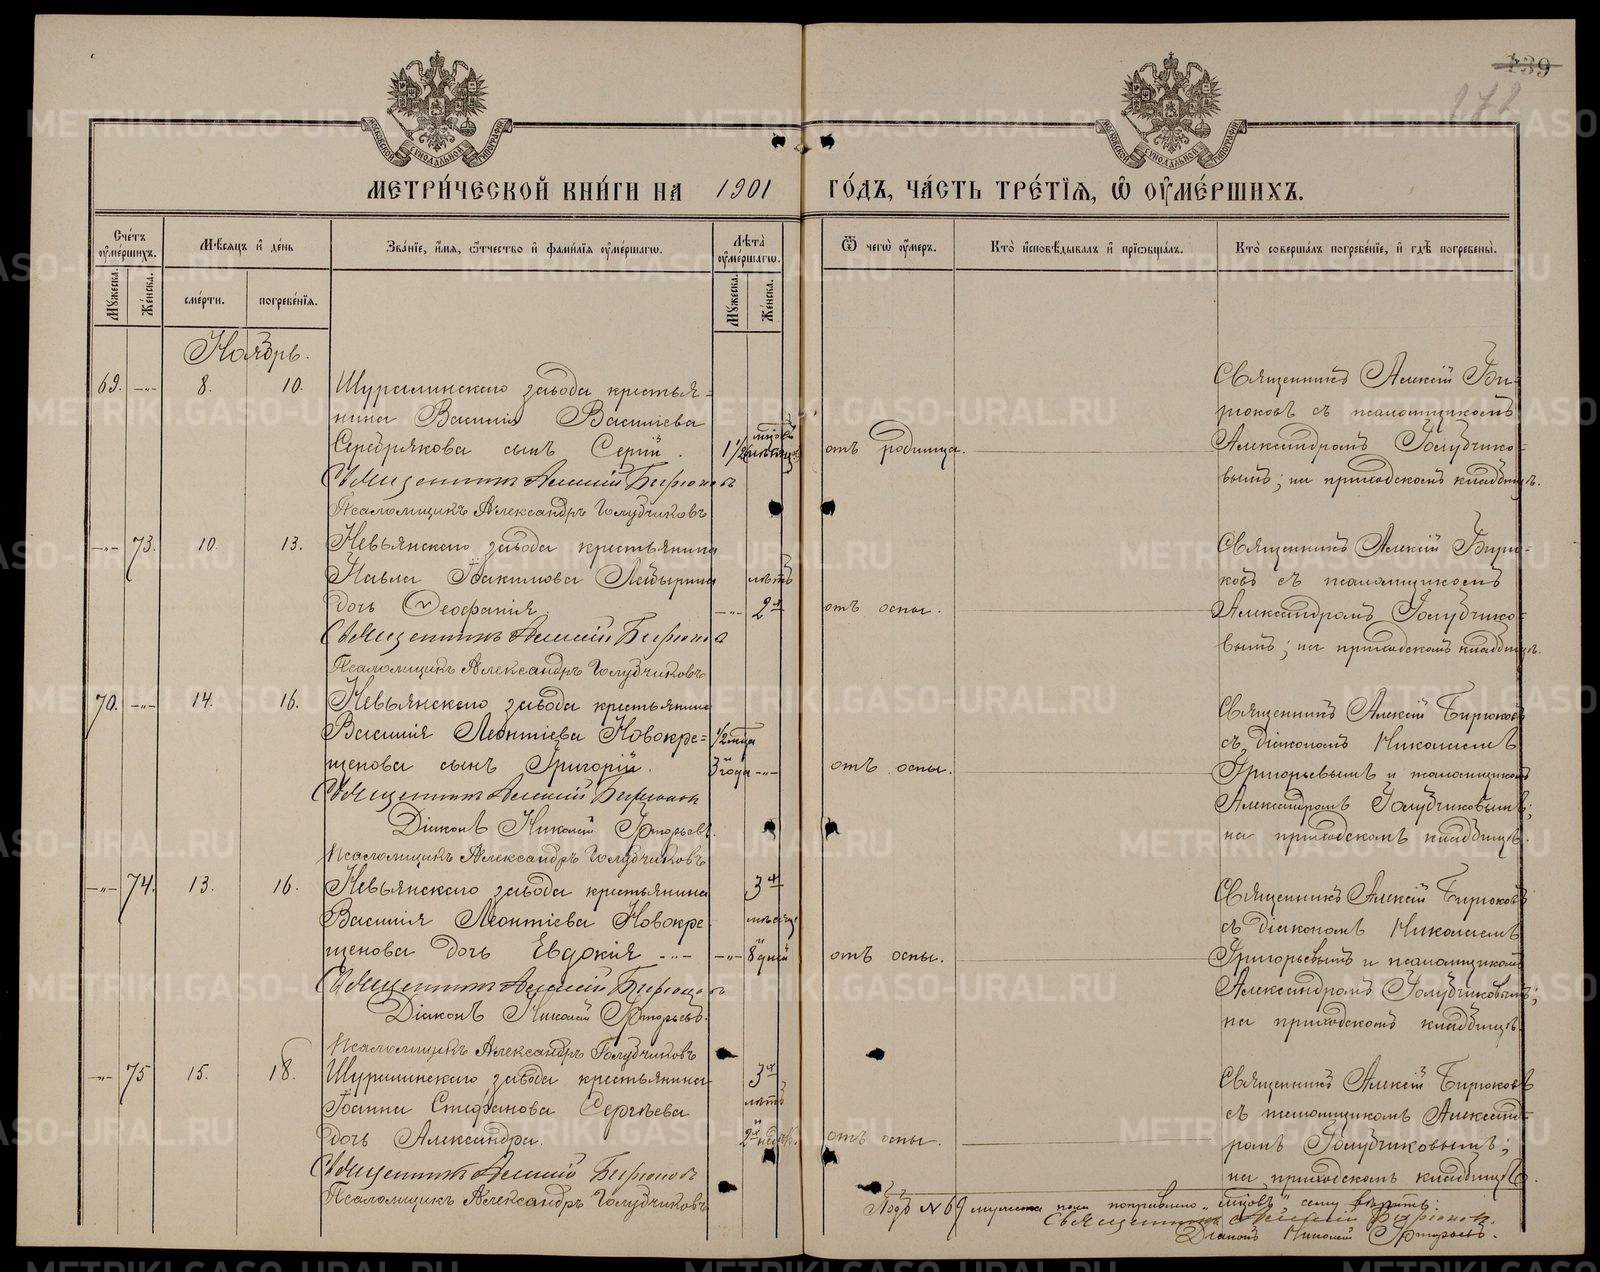 139
272
МОСКОВСКОЙ СѴНОДАЛЬНОЙ ТИПОГРАФІИ
МОСКОВСКОЙ СѴНОДАЛЬНОЙ ТИПОГРАФІИ
МЕТРИ́ЧЕСКОЙ КНИ́ГИ НА 1901 ГО́ДЪ, ЧА́СТЬ ТРЕ́ТІѦ, Ѡ҆ ОУ҆МЕ́РШИХЪ.
Сче́тъ оу҆ме́ршихъ.
Мꙋжеска.
Же́нска.
Мѣ́сяцъ и҆ де́нь
сме́рти.
погребе́нїѧ.
Зва́нїе, и҆́мѧ, ѻ҆́тчество и҆ фами́лїѧ оу҆ме́ршагѡ.
Лѣ́та оу҆ме́ршагѡ.
Мꙋжеска.
Же́нска.
Ѿ чегѡ̀ оу҆́меръ.
Кто̀ и҆сповѣ́дывалъ и҆ прїѡбща́лъ.
Кто̀ соверша́лъ погребе́нїе, и҆ гдѣ̀ погребены̀.
Ноябрь.
69. -„- 8. 10. Шуралинскаго завода крестья-
нина Василія Васильева
Серебрякова сынъ Сергій. 1½ мѣсяца отъ родимца.
Священникъ Алексій Бирюковъ
Псаломщикъ Александръ Голубчиковъ
Священникъ Алексій Би-
рюковъ съ псаломщикомъ
Александромъ Голубчико-
вымъ; на приходскомъ кладбищѣ.
-„- 73. 10. 13. Невьянскаго завода крестьянина
Павла Іакимова
дочь Ѳеофанія. -„- 2хъ лѣтъ отъ оспы.
Священникъ Алексій Бирюковъ
Псаломщикъ Александръ Голубчиковъ
Священникъ Алексій Бирю-
ковъ съ псаломщикомъ
Александромъ Голубчико-
вымъ; на приходскомъ кладбищѣ.
70. -„- 14. 16. Невьянскаго завода крестьянина
Василія Леонтіева Новокре-
щенова сынъ Григорій. 3 года -„- отъ оспы.
Священникъ Алексій Бирюковъ
Діаконъ Николай Григорьевъ.
Псаломщикъ Александръ Голубчиковъ
Священникъ Алексій Бирюковъ
съ діакономъ Николаемъ
Григорьевымъ и псаломщикомъ
Александромъ Голубчиковымъ;
на приходскомъ кладбищѣ.
-„- 74. 13. 16. Невьянскаго завода крестьянина 3хъ
Василія Леонтіева Новокре- мѣсяца
щенова дочь Евдокія -„- -„- 8 дней отъ оспы.
Священникъ Алексій Бирюковъ
Діаконъ Николай Григорьевъ.
Псаломщикъ Александръ Голубчиковъ
Священникъ Алексій Бирюковъ
съ діакономъ Николаемъ
Григорьевымъ и псаломщикомъ
Александромъ Голубчиковымъ;
на приходскомъ кладбищѣ.
-„- 75 15. 18. Шуралинскаго завода крестьянина 3хъ
Іоанна Стефанова Сергѣева лѣтъ
дочь Александра. 2хъ нед. отъ оспы.
Священникъ Алексій Бирюковъ
Псаломщикъ Александръ Голубчиковъ
Священникъ Алексій Бирюковъ
съ псаломщикомъ Александ-
ромъ Голубчиковымъ;
на приходскомъ кладбищѣ.
Подъ № 69 мужеска пола поправлено сему вѣрить:
Священникъ Алексій Бирюковъ.
Діаконъ Николай Григорьевъ.
METRIKI.GASO-URAL.RU